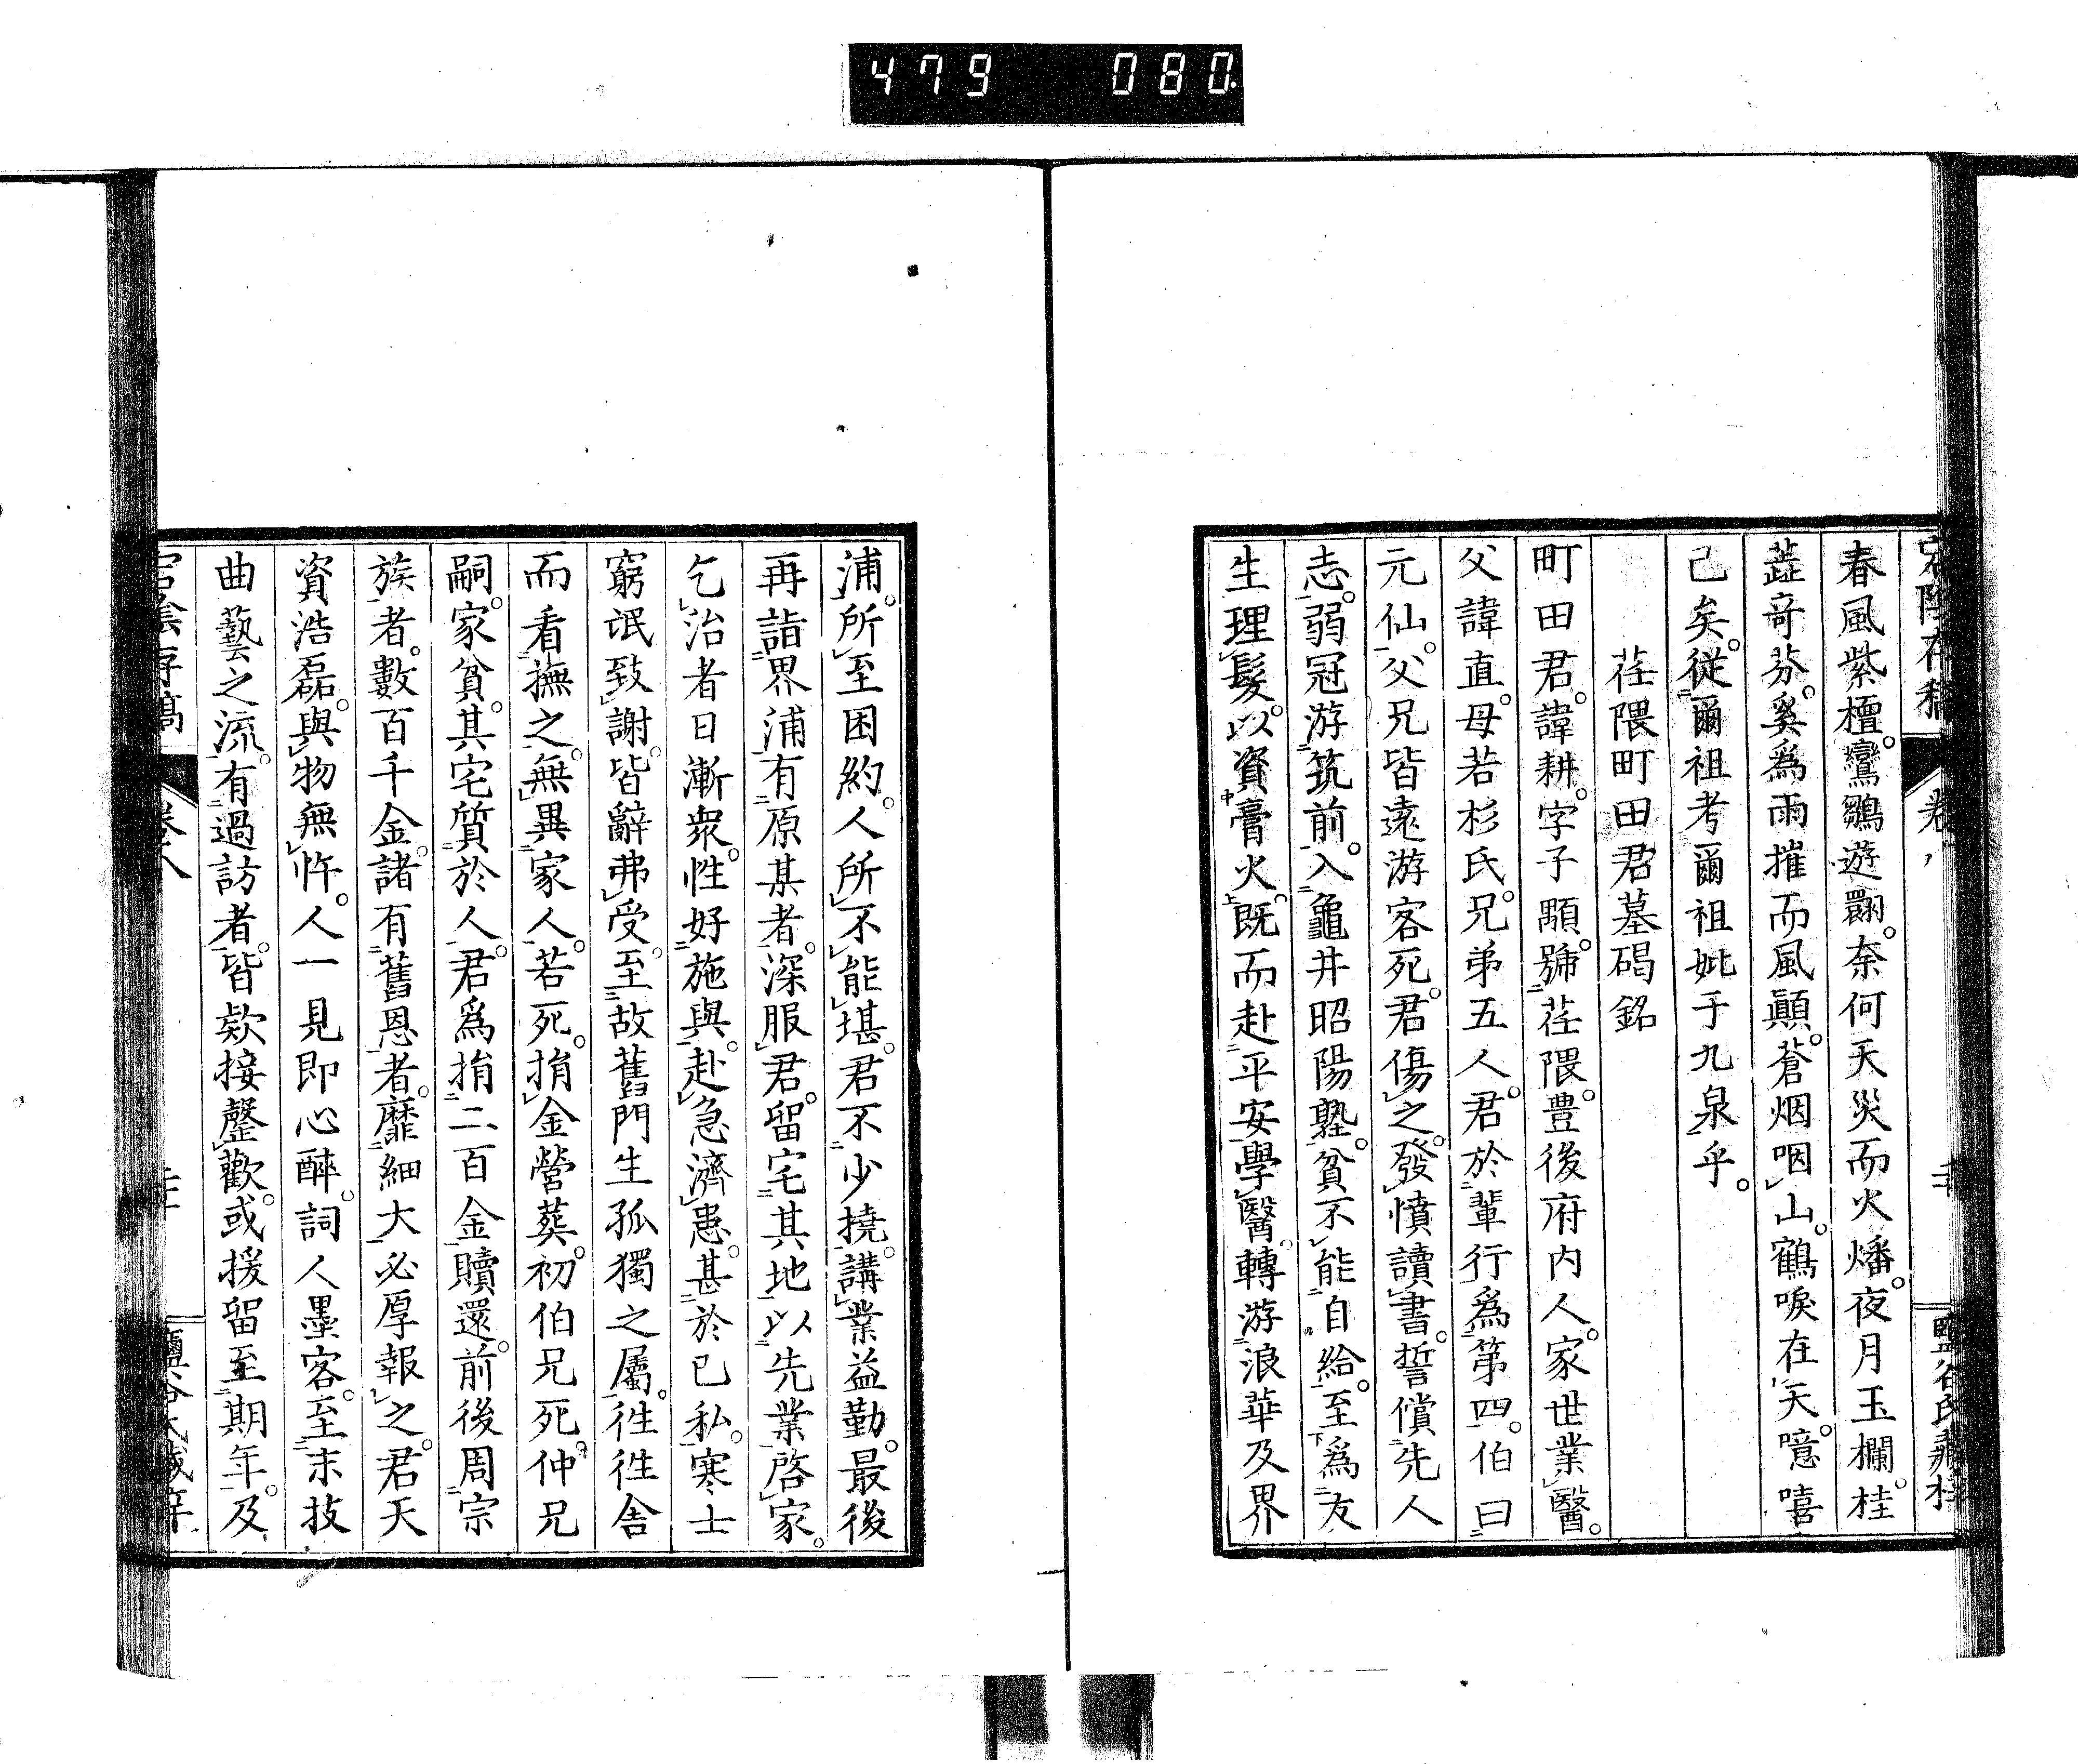 479 080
春風紫檀。鸞鶵遊翾。奈何天災而火燔。夜月玉欄。桂
蕋奇芬。奚爲雨摧而風顚。蒼烟咽山。鶴唳在天。噫嘻
己矣。從爾祖考爾祖妣于九泉乎。
荏隈町田君墓碣銘
町田君。諱耕。字子顒。號荏隈。豊後府内人。家世業醫。
父諱直。母若杉氏。兄弟五人。君於輩行爲第四。伯曰
元仙。父兄皆遠游客死。君傷之。發憤讀書。誓償先人
志。弱冠游筑前。入龜井昭陽塾。貧不能自給。至爲友
生理髮。以資膏火。既而赴平安學醫。轉游浪華及界
浦。所至困約。人所不能堪。君不少撓。講業益勤。最後
再詣界浦。有原某者。深服君。留宅其地。以先業啓家。
乞治者日漸衆。性好施與。赴急濟患。甚於己私。寒士
窮氓致謝。皆辭弗受。至故舊門生孤獨之屬。徃徃舍
而看撫之。無異家人。若死。捐金營葬。初伯兄死。仲兄
嗣。家貧。其宅質於人。君爲捐二百金贖還。前後周宗
族者。數百千金。諸有舊恩者。靡細大必厚報之。君天
資浩磊。與物無忤。人一見即心醉。詞人墨客。至末技
曲藝之流。有過訪者。皆欵接罄歡。或援留至期年。及